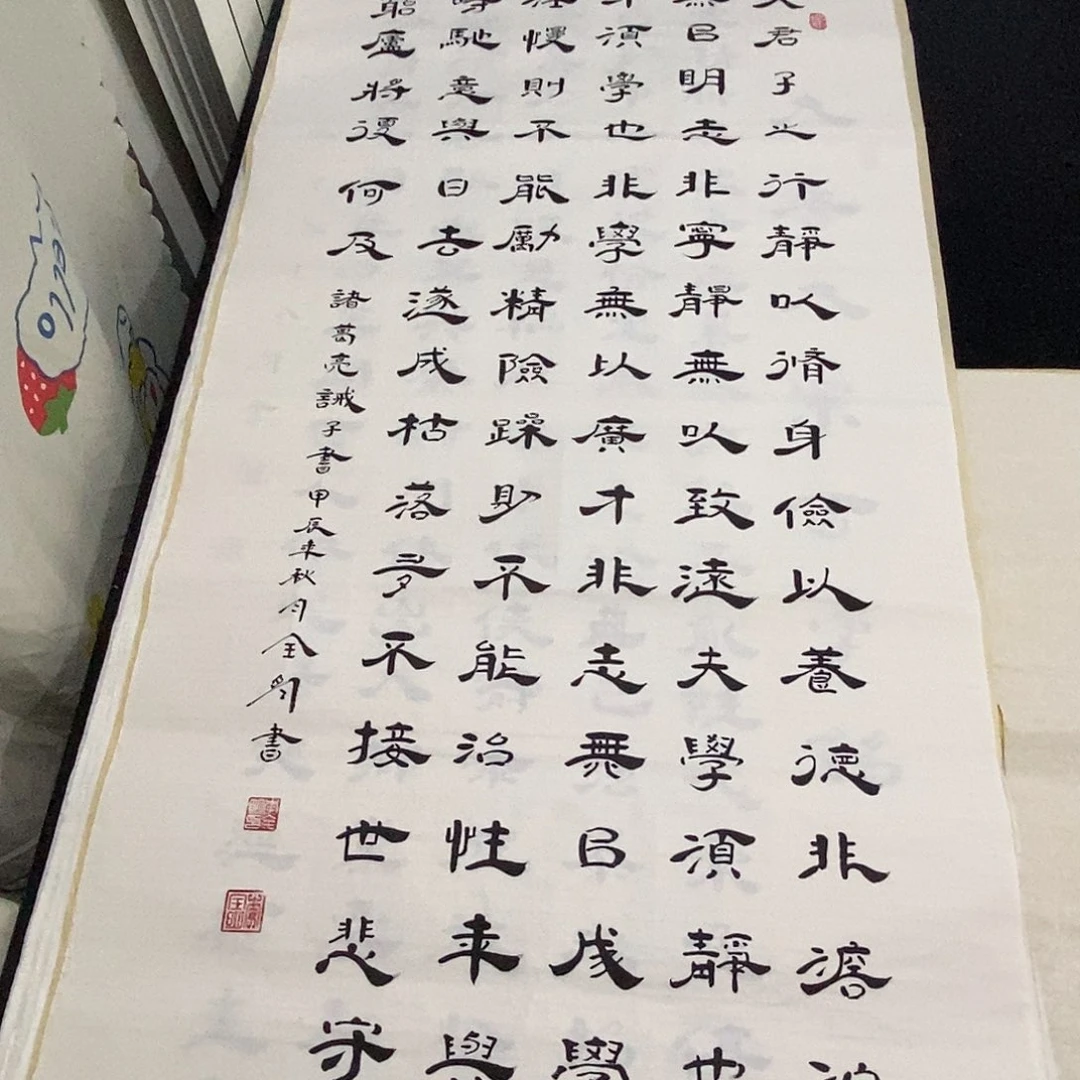 夫君子之行靜以脩身儉以養德非澹泊
無㠯明志非寧靜無以致遠夫學須靜也
才須學也非學無以廣才非志無㠯成學
淫慢則不能勵精險躁則不能治性年與
時馳意與日去遂成枯落多不接世悲守
窮廬將復何及
諸葛亮誡子書甲辰年秋月全剛書